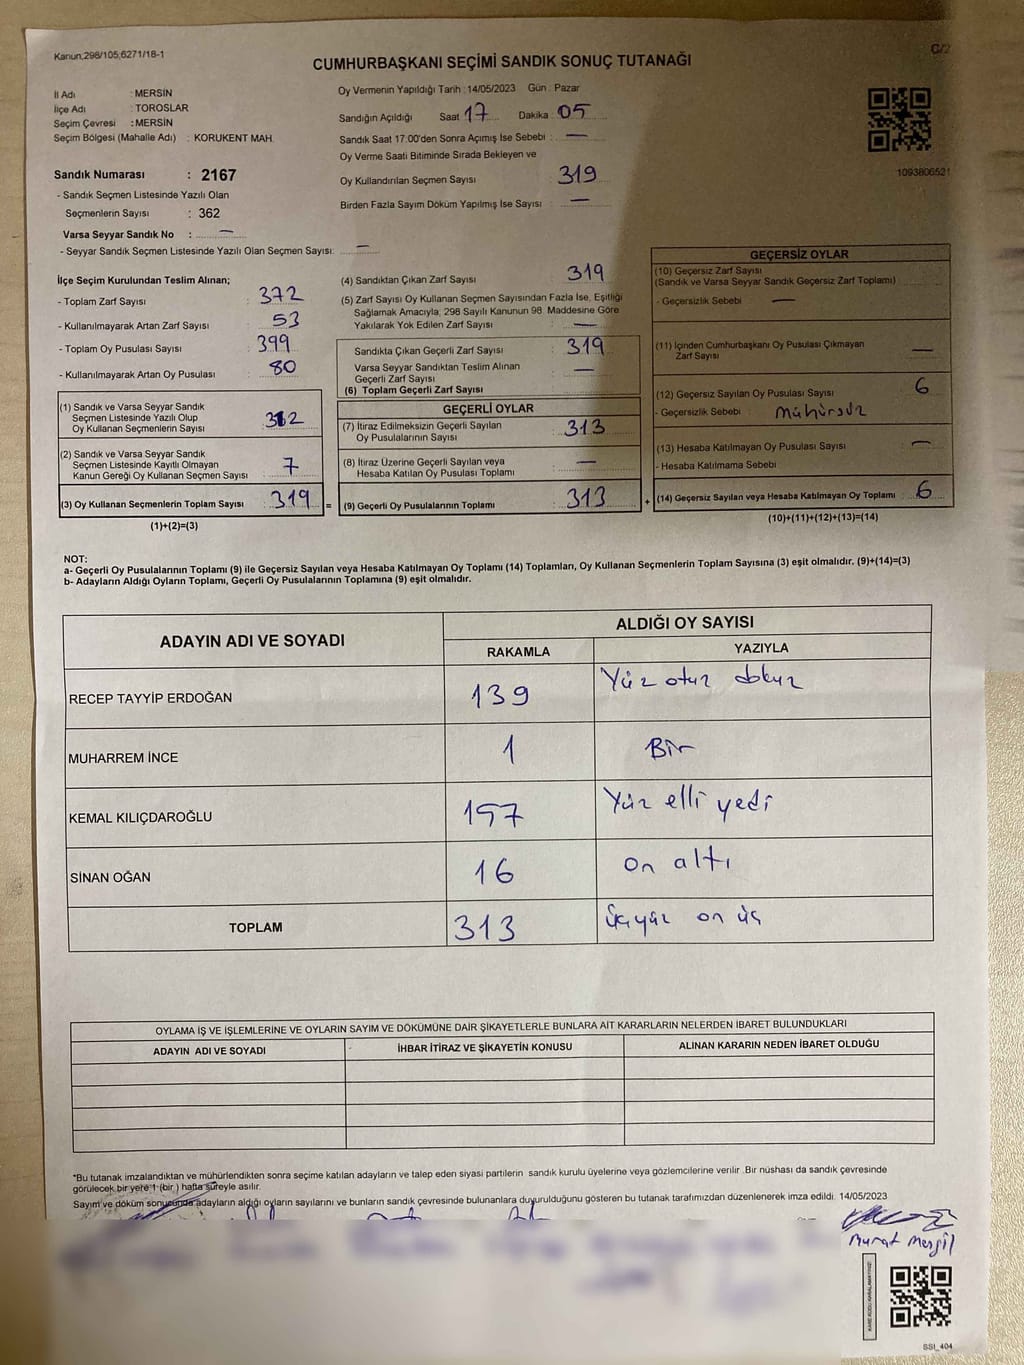 Kanun;298/105;6271/18-1
C/2
CUMHURBAŞKANI SEÇİMİ SANDIK SONUÇ TUTANAĞI
İl Adı : MERSİN
İlçe Adı : TOROSLAR
Seçim Çevresi : MERSİN
Seçim Bölgesi (Mahalle Adı) : KORUKENT MAH.
Oy Vermenin Yapıldığı Tarih :14/05/2023 Gün : Pazar
Sandığın Açıldığı Saat 17 Dakika 05
Sandık Saat 17:00'den Sonra Açımış İse Sebebi : —
Oy Verme Saati Bitiminde Sırada Bekleyen ve
Oy Kullandırılan Seçmen Sayısı 319
Birden Fazla Sayım Döküm Yapılmış İse Sayısı : —
1093806521
Sandık Numarası : 2167
- Sandık Seçmen Listesinde Yazılı Olan
Seçmenlerin Sayısı : 362
Varsa Seyyar Sandık No : —
- Seyyar Sandık Seçmen Listesinde Yazılı Olan Seçmen Sayısı: —
İlçe Seçim Kurulundan Teslim Alınan;
- Toplam Zarf Sayısı : 372
- Kullanılmayarak Artan Zarf Sayısı : 53
- Toplam Oy Pusulası Sayısı : 399
- Kullanılmayarak Artan Oy Pusulası : 80
(1) Sandık ve Varsa Seyyar Sandık
Seçmen Listesinde Yazılı Olup
Oy Kullanan Seçmenlerin Sayısı : 312
(2) Sandık ve Varsa Seyyar Sandık
Seçmen Listesinde Kayıtlı Olmayan
Kanun Gereği Oy Kullanan Seçmen Sayısı : 7
(3) Oy Kullanan Seçmenlerin Toplam Sayısı : 319 =
(1)+(2)=(3)
(4) Sandıktan Çıkan Zarf Sayısı : 319
(5) Zarf Sayısı Oy Kullanan Seçmen Sayısından Fazla İse, Eşitliği
Sağlamak Amacıyla; 298 Sayılı Kanunun 98. Maddesine Göre
Yakılarak Yok Edilen Zarf Sayısı : —
Sandıkta Çıkan Geçerli Zarf Sayısı : 319
Varsa Seyyar Sandıktan Teslim Alınan
Geçerli Zarf Sayısı : —
(6) Toplam Geçerli Zarf Sayısı
GEÇERLİ OYLAR
(7) İtiraz Edilmeksizin Geçerli Sayılan
Oy Pusulalarının Sayısı : 313
(8) İtiraz Üzerine Geçerli Sayılan veya
Hesaba Katılan Oy Pusulası Toplamı : —
(9) Geçerli Oy Pusulalarının Toplamı : 313 +
GEÇERSİZ OYLAR
(10) Geçersiz Zarf Sayısı
(Sandık ve Varsa Seyyar Sandık Geçersiz Zarf Toplamı)
- Geçersizlik Sebebi : —
(11) İçinden Cumhurbaşkanı Oy Pusulası Çıkmayan
Zarf Sayısı —
(12) Geçersiz Sayılan Oy Pusulası Sayısı 6
- Geçersizlik Sebebi : mühürsüz
(13) Hesaba Katılmayan Oy Pusulası Sayısı —
- Hesaba Katılmama Sebebi
(14) Geçersiz Sayılan veya Hesaba Katılmayan Oy Toplamı 6
(10)+(11)+(12)+(13)=(14)
NOT:
a- Geçerli Oy Pusulalarının Toplamı (9) ile Geçersiz Sayılan veya Hesaba Katılmayan Oy Toplamı (14) Toplamları, Oy Kullanan Seçmenlerin Toplam Sayısına (3) eşit olmalıdır. (9)+(14)=(3)
b- Adayların Aldığı Oyların Toplamı, Geçerli Oy Pusulalarının Toplamına (9) eşit olmalıdır.
ADAYIN ADI VE SOYADI ALDIĞI OY SAYISI
RAKAMLA YAZIYLA
RECEP TAYYİP ERDOĞAN 139 Yüz otuz dokuz
MUHARREM İNCE 1 Bir
KEMAL KILIÇDAROĞLU 157 Yüz elli yedi
SİNAN OĞAN 16 on altı
TOPLAM 313 üçyüz on üç
OYLAMA İŞ VE İŞLEMLERİNE VE OYLARIN SAYIM VE DÖKÜMÜNE DAİR ŞİKAYETLERLE BUNLARA AİT KARARLARIN NELERDEN İBARET BULUNDUKLARI
ADAYIN ADI VE SOYADI İHBAR İTİRAZ VE ŞİKAYETİN KONUSU ALINAN KARARIN NEDEN İBARET OLDUĞU
*Bu tutanak imzalandıktan ve mühürlendikten sonra seçime katılan adayların ve talep eden siyasi partilerin sandık kurulu üyelerine veya gözlemcilerine verilir .Bir nüshası da sandık çevresinde
görülecek bir yere 1 (bir ) hafta süreyle asılır.
Sayım ve döküm sonucunda adayların aldığı oyların sayılarını ve bunların sandık çevresinde bulunanlara duyurulduğunu gösteren bu tutanak tarafımızdan düzenlenerek imza edildi. 14/05/2023
Murat
SSI_404